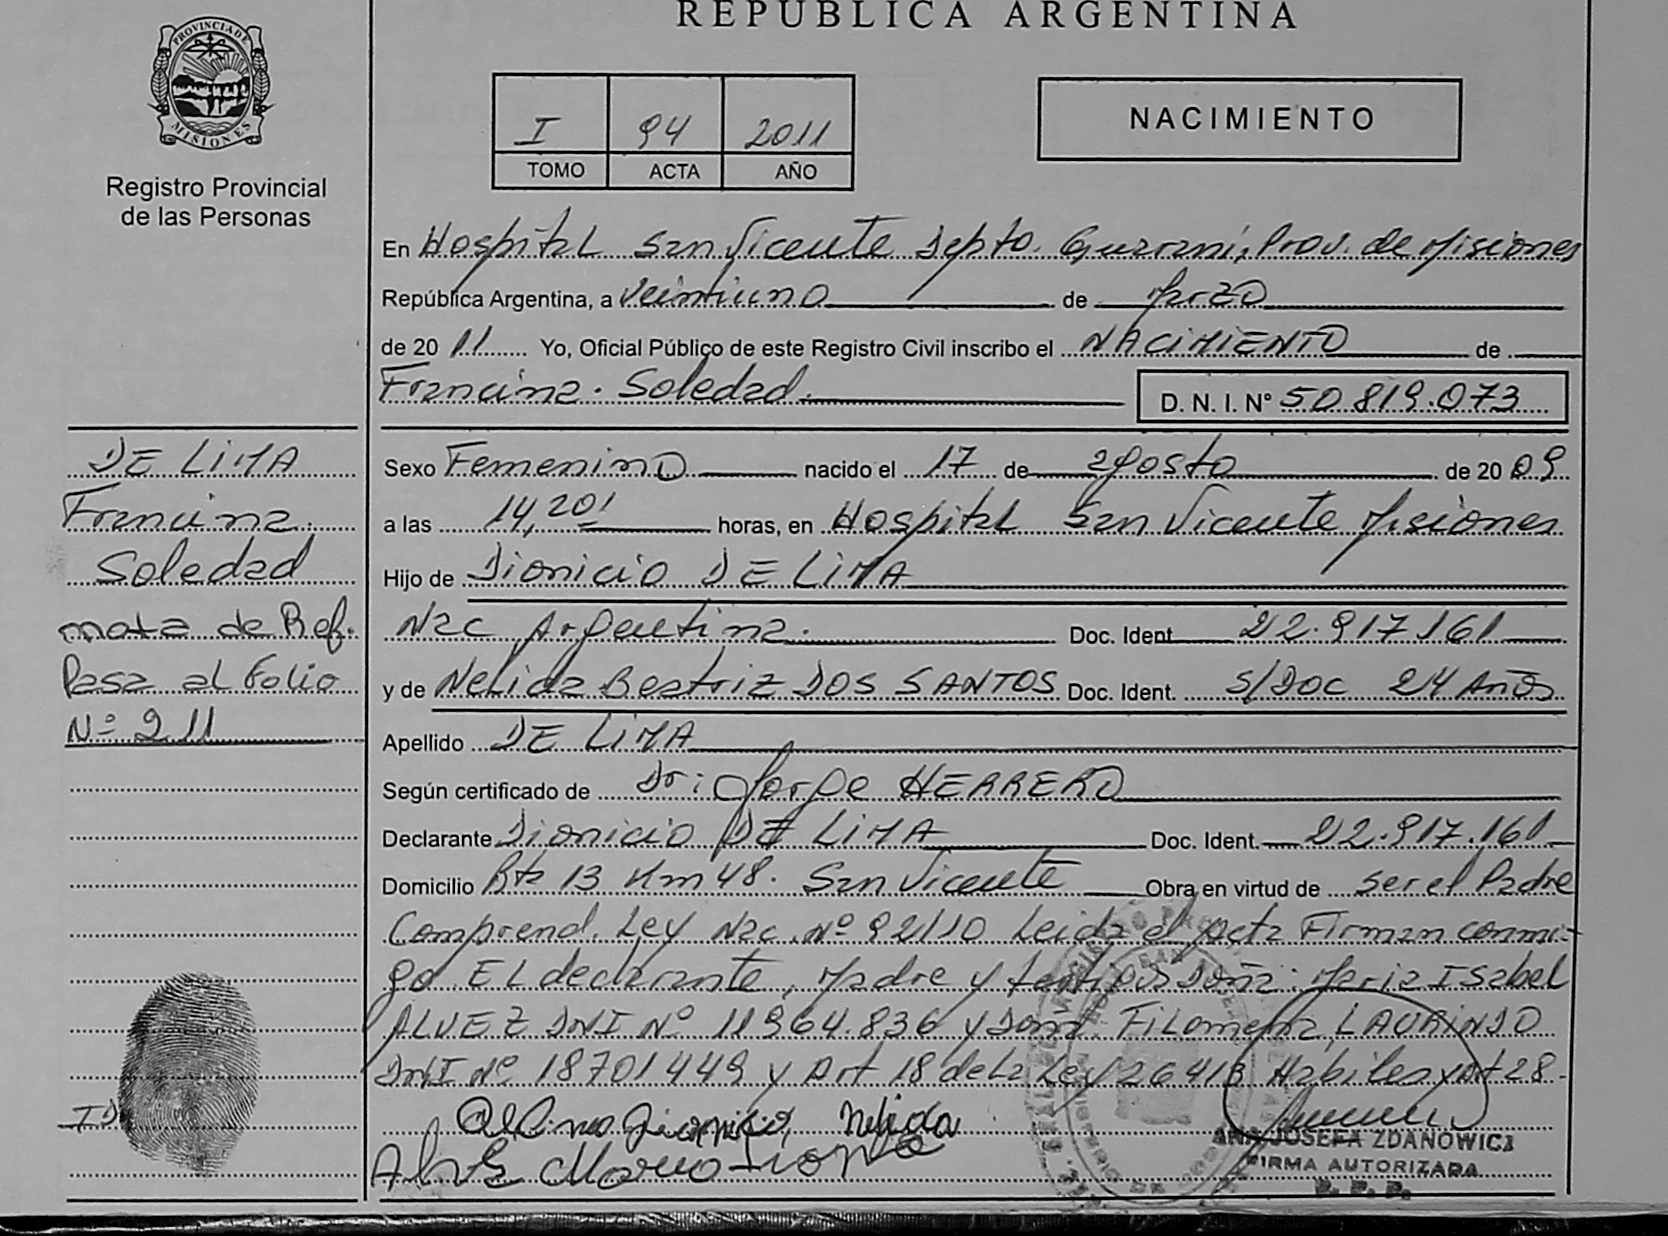 REPUBLICA ARGENTINA
PROVINCIA DE
MISIONES
Registro Provincial
de las Personas
I 94 2011
TOMO ACTA AÑO
NACIMIENTO
En Hospital San Vicente Depto. Guarani, Prov. de Misiones
República Argentina, a veintiuno de Marzo
de 20 11 Yo, Oficial Público de este Registro Civil inscribo el NACIMIENTO de
Francina Soledad D. N. I. N° 50.819.073
DE LIMA
Francina
Soledad
nota de Ref.
Pasa al Folio
Nº 211
Sexo Femenino nacido el 17 de agosto de 20 09
a las 14,20 horas, en Hospital San Vicente Misiones
Hijo de Dionicio DE LIMA
Nac Argentina. Doc. Ident 22.917.161
y de Nelida Beatriz DOS SANTOS Doc. Ident. S/DOC 24 Años
Apellido DE LIMA
Según certificado de Dr: Jorge HERRERO
Declarante Dionicio DE LIMA Doc. Ident. 22.917.161
Domicilio Rta 13 Km 48. San Vicente Obra en virtud de ser el Padre
Comprend. Ley Nac. Nº 92/10 Leida el acta Firman conmi-
go. El declarante, Madre y testigos Doña: Maria Isabel
ALVEZ DNI Nº 11964.836 y Doña Filomena LAURINDO
DNI Nº 18701449 y Art 18 de la Ley 26413 Habiles y Art 28-
Nelida
ANA JOSEFA ZDANOWICZ
FIRMA AUTORIZADA
R. P. P.